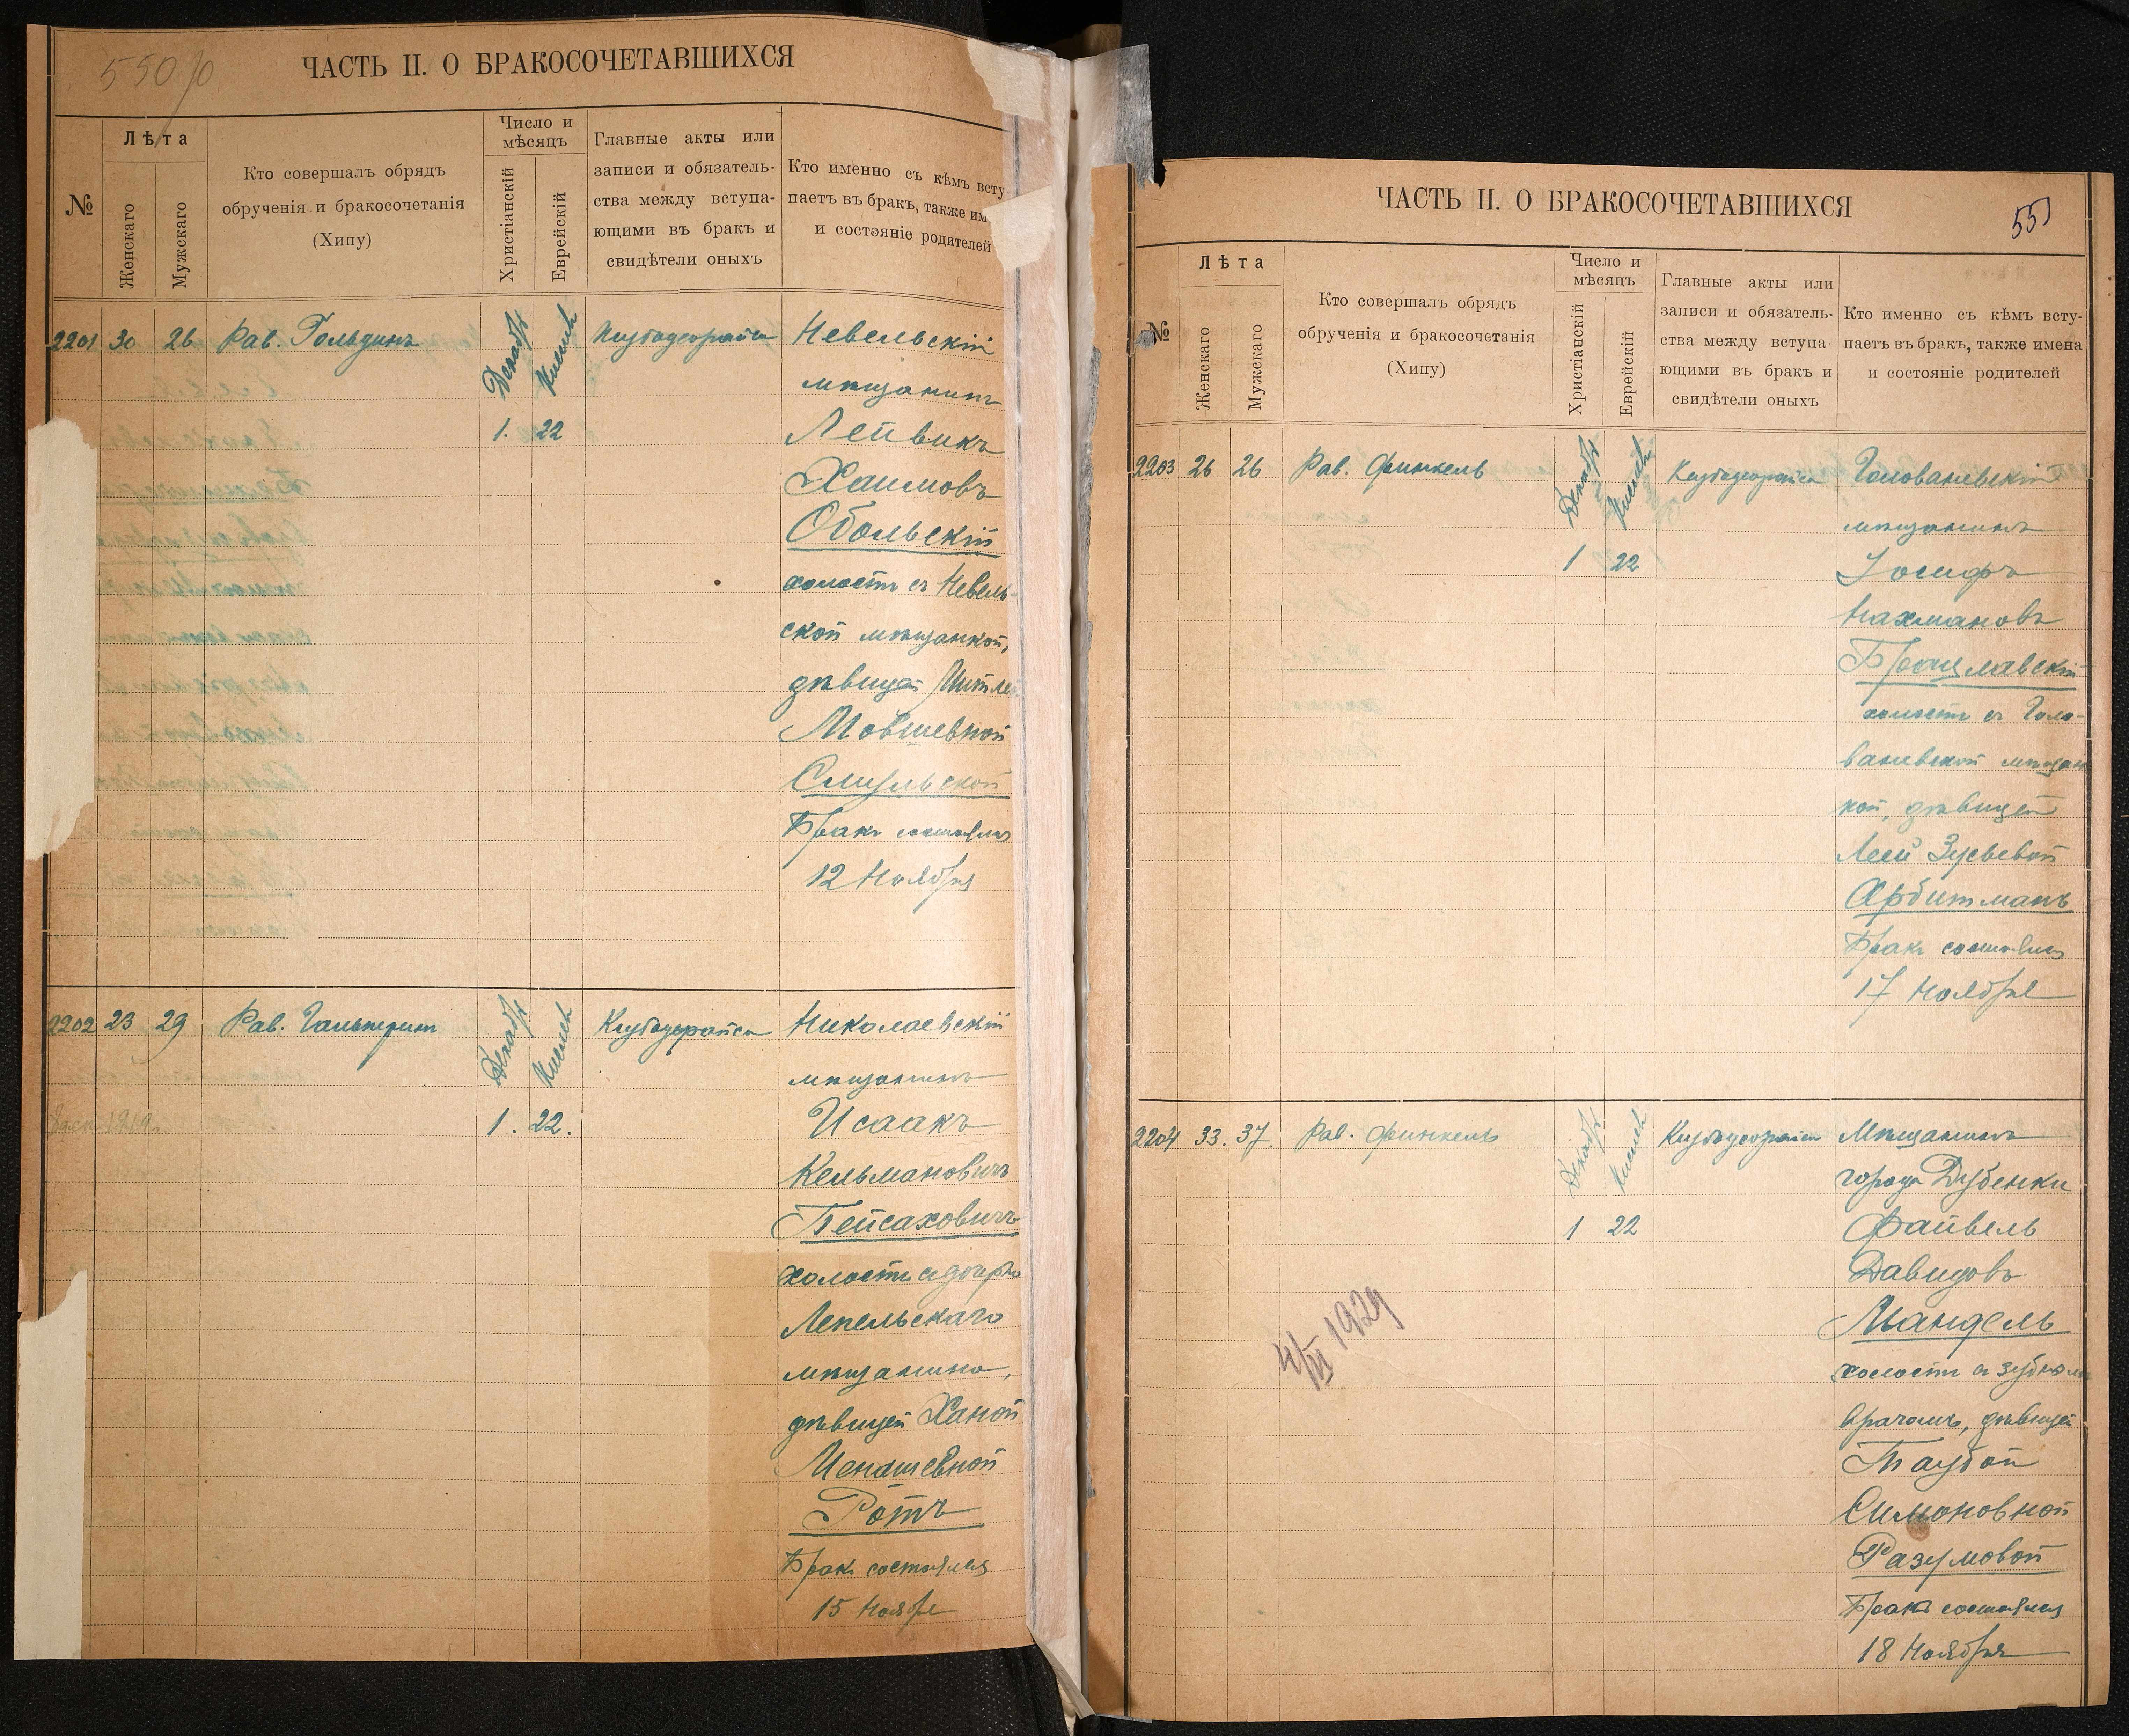 550
ЧАСТЬ II. О БРАКОСОЧЕТАВШИХСЯ
№
Лѣта
Женскаго
Мужскаго
Кто совершалъ обрядъ
обрученія и бракосочетанія
(Хипу)
Число и
мѣсяцъ
Христіанскій
Еврейскій
Главные акты или
записи и обязатель-
ства между вступа-
ющими въ бракъ и
свидѣтели оныхъ
Кто именно съ кѣмъ всту
паетъ въ бракъ, также им
и состояніе родителей
2201 30 26 Рав. Гольдинъ
Декабр Кислев
1. 22
Невельскій
мѣщанинъ
Лейвикъ
Хаимовъ
Обольскій
холостъ съ Невель-
ской мѣщанкой,
дѣвицей
Мовшевной
Бракъ состоялся
12 Ноября
2202 23 29 Рав. Гальперинъ
Декабр Кислев
1. 22.
Николаевскій
мѣщанинъ
Исаакъ
Кельмановичъ
Пейсаховичъ
холостъ с дочерью
Лепельскаго
мѣщанина,
дѣвицей Ханой
Менашевной
Ротъ
Бракъ состоялся
15 Ноября
ЧАСТЬ II. О БРАКОСОЧЕТАВШИХСЯ
551
№
Лѣта
Женскаго
Мужскаго
Кто совершалъ обрядъ
обрученія и бракосочетанія
(Хипу)
Число и
мѣсяцъ
Христіанскій
Еврейскій
Главные акты или
записи и обязатель-
ства между вступа
ющими въ бракъ и
свидѣтели оныхъ
Кто именно съ кѣмъ всту-
паетъ въ бракъ, также имена
и состояніе родителей
2203 26 26 Рав. Финкель
Декабр Кислев
1 22
Голованевскій
мѣщанинъ
Іосифъ
Нахмановъ
Брацлавскій
холостъ съ Голо-
ваневской мѣщан
кой, дѣвицей
Леей Зусьевой
Арбитманъ
Бракъ состоялся
17 Ноября
2204 33. 37. Рав. Финкель
Декабр Кислев
1 22
Мѣщанинъ
города Дубенки
Файвель
Давидовъ
Мандель
холостъ съ зубнымъ
врачомъ, дѣвицей
Таубой
Симоновной
Разумовой
Бракъ состоялся
18 Ноября
1929